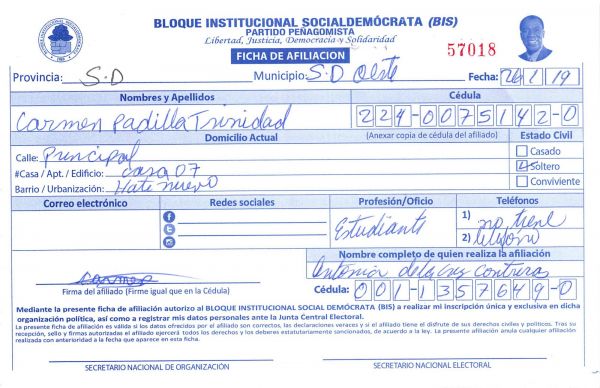 BLOQUE INSTITUCIONAL SOCIALDEMÓCRATA (BIS)
PARTIDO PEÑAGOMISTA
Libertad, Justicia, Democracia y Solidaridad
FICHA DE AFILIACION
57018
Provincia: S.D Municipio: S.D Oeste Fecha: 26/1/19
Nombres y Apellidos Cédula
Carmen Padilla Trinidad 224-0075142-0
Domicilio Actual (Anexar copia de cédula del afiliado) Estado Civil
Calle: Principal Casado
#Casa / Apt. / Edificio: casa 07 Soltero
Barrio / Urbanización: Hato nuevo Conviviente
Correo electrónico Redes sociales Profesión/Oficio Teléfonos
Estudiante 1) no tiene
2)
Nombre completo de quien realiza la afiliación
Carmen Antonia de la Cruz Contreras
Firma del afiliado (Firme igual que en la Cédula) Cédula: 001-1357649-0
Mediante la presente ficha de afiliación autorizo al BLOQUE INSTITUCIONAL SOCIAL DEMÓCRATA (BIS) a realizar mi inscripción única y exclusiva en dicha
organización política, así como a registrar mis datos personales ante la Junta Central Electoral.
La presente ficha de afiliación es válida si los datos ofrecidos por el afiliado son correctos, las declaraciones veraces y si el afiliado tiene el disfrute de sus derechos civiles y políticos. Tras su
recepción, sello y firmas autorizadas el afiliado ejercerá todos los derechos y los deberes estatutariamente sancionados, de acuerdo a la ley. La presente afiliación anula cualquier afiliación
realizada con anterioridad a la fecha que aparece en esta ficha.
SECRETARIO NACIONAL DE ORGANIZACIÓN SECRETARIO NACIONAL ELECTORAL